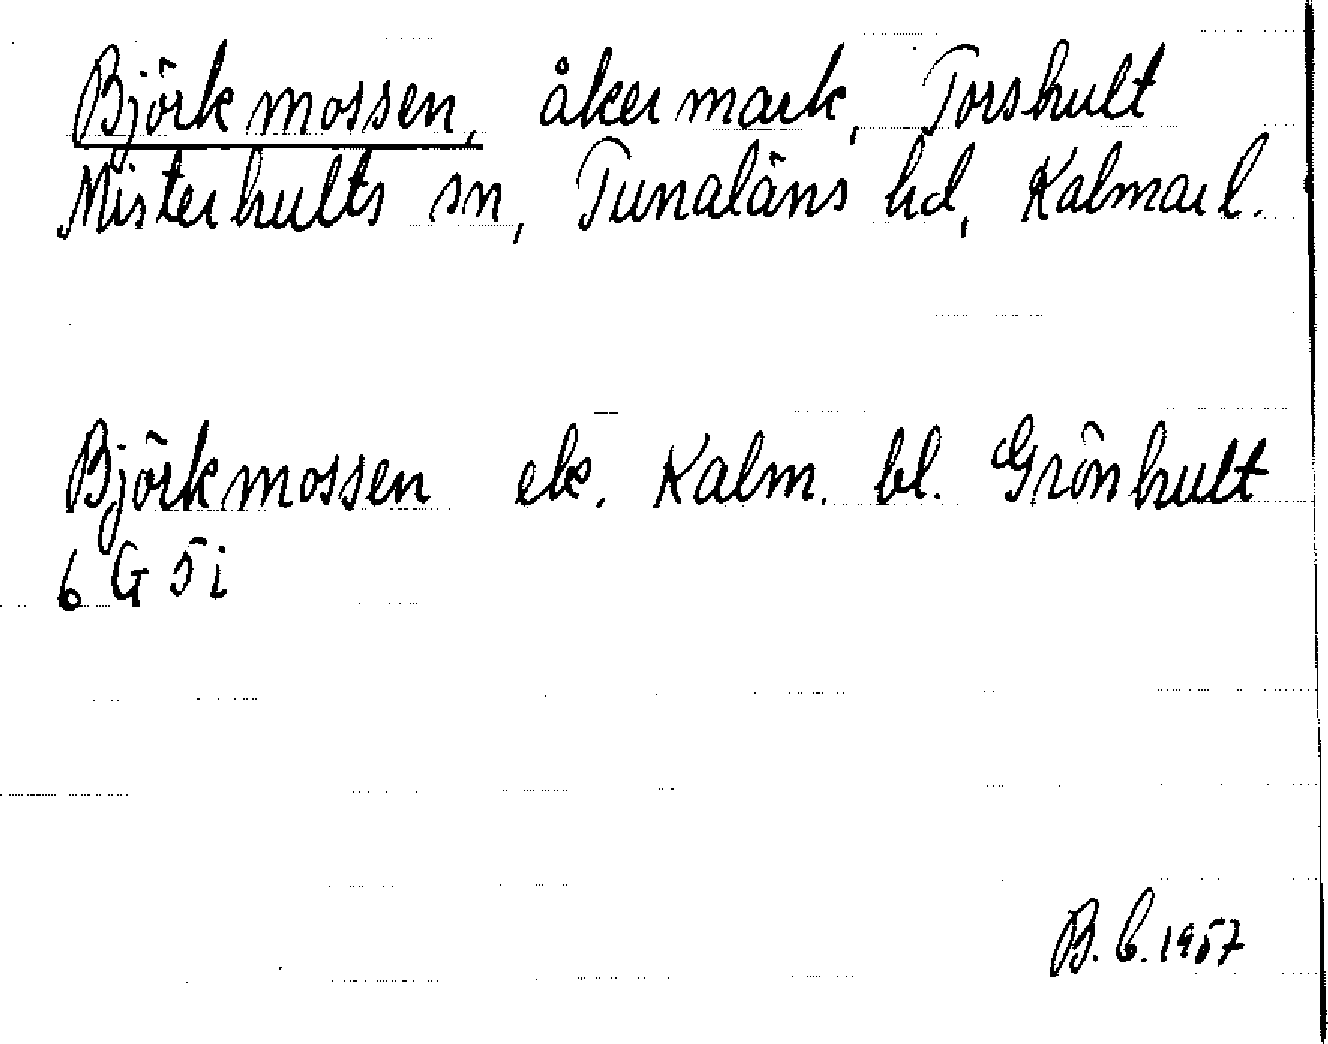 Björkmossen, åkermark, Torshult
Misterhults sn, Tunaläns hd, Kalmar l.
Björkmossen ek. Kalm. bl. Grönhult
6 G 5 i
B. b. 1957